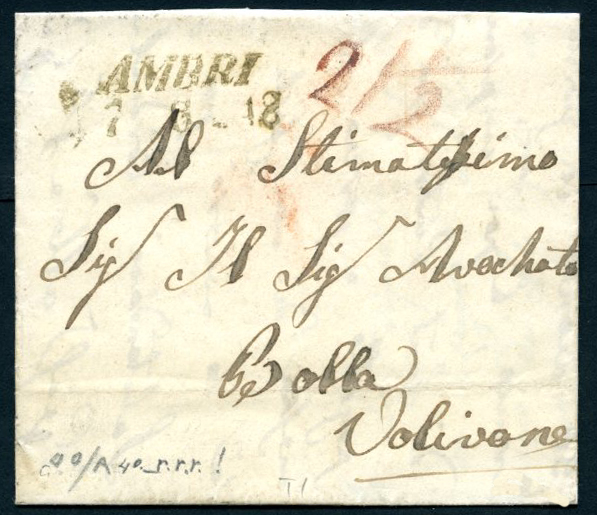 AMBRI
7 8 _ 48
2 1/2
Al Stimatissimo
Sig Il Sig Avochato
Bolla
Volivone
40 r.r.r. !